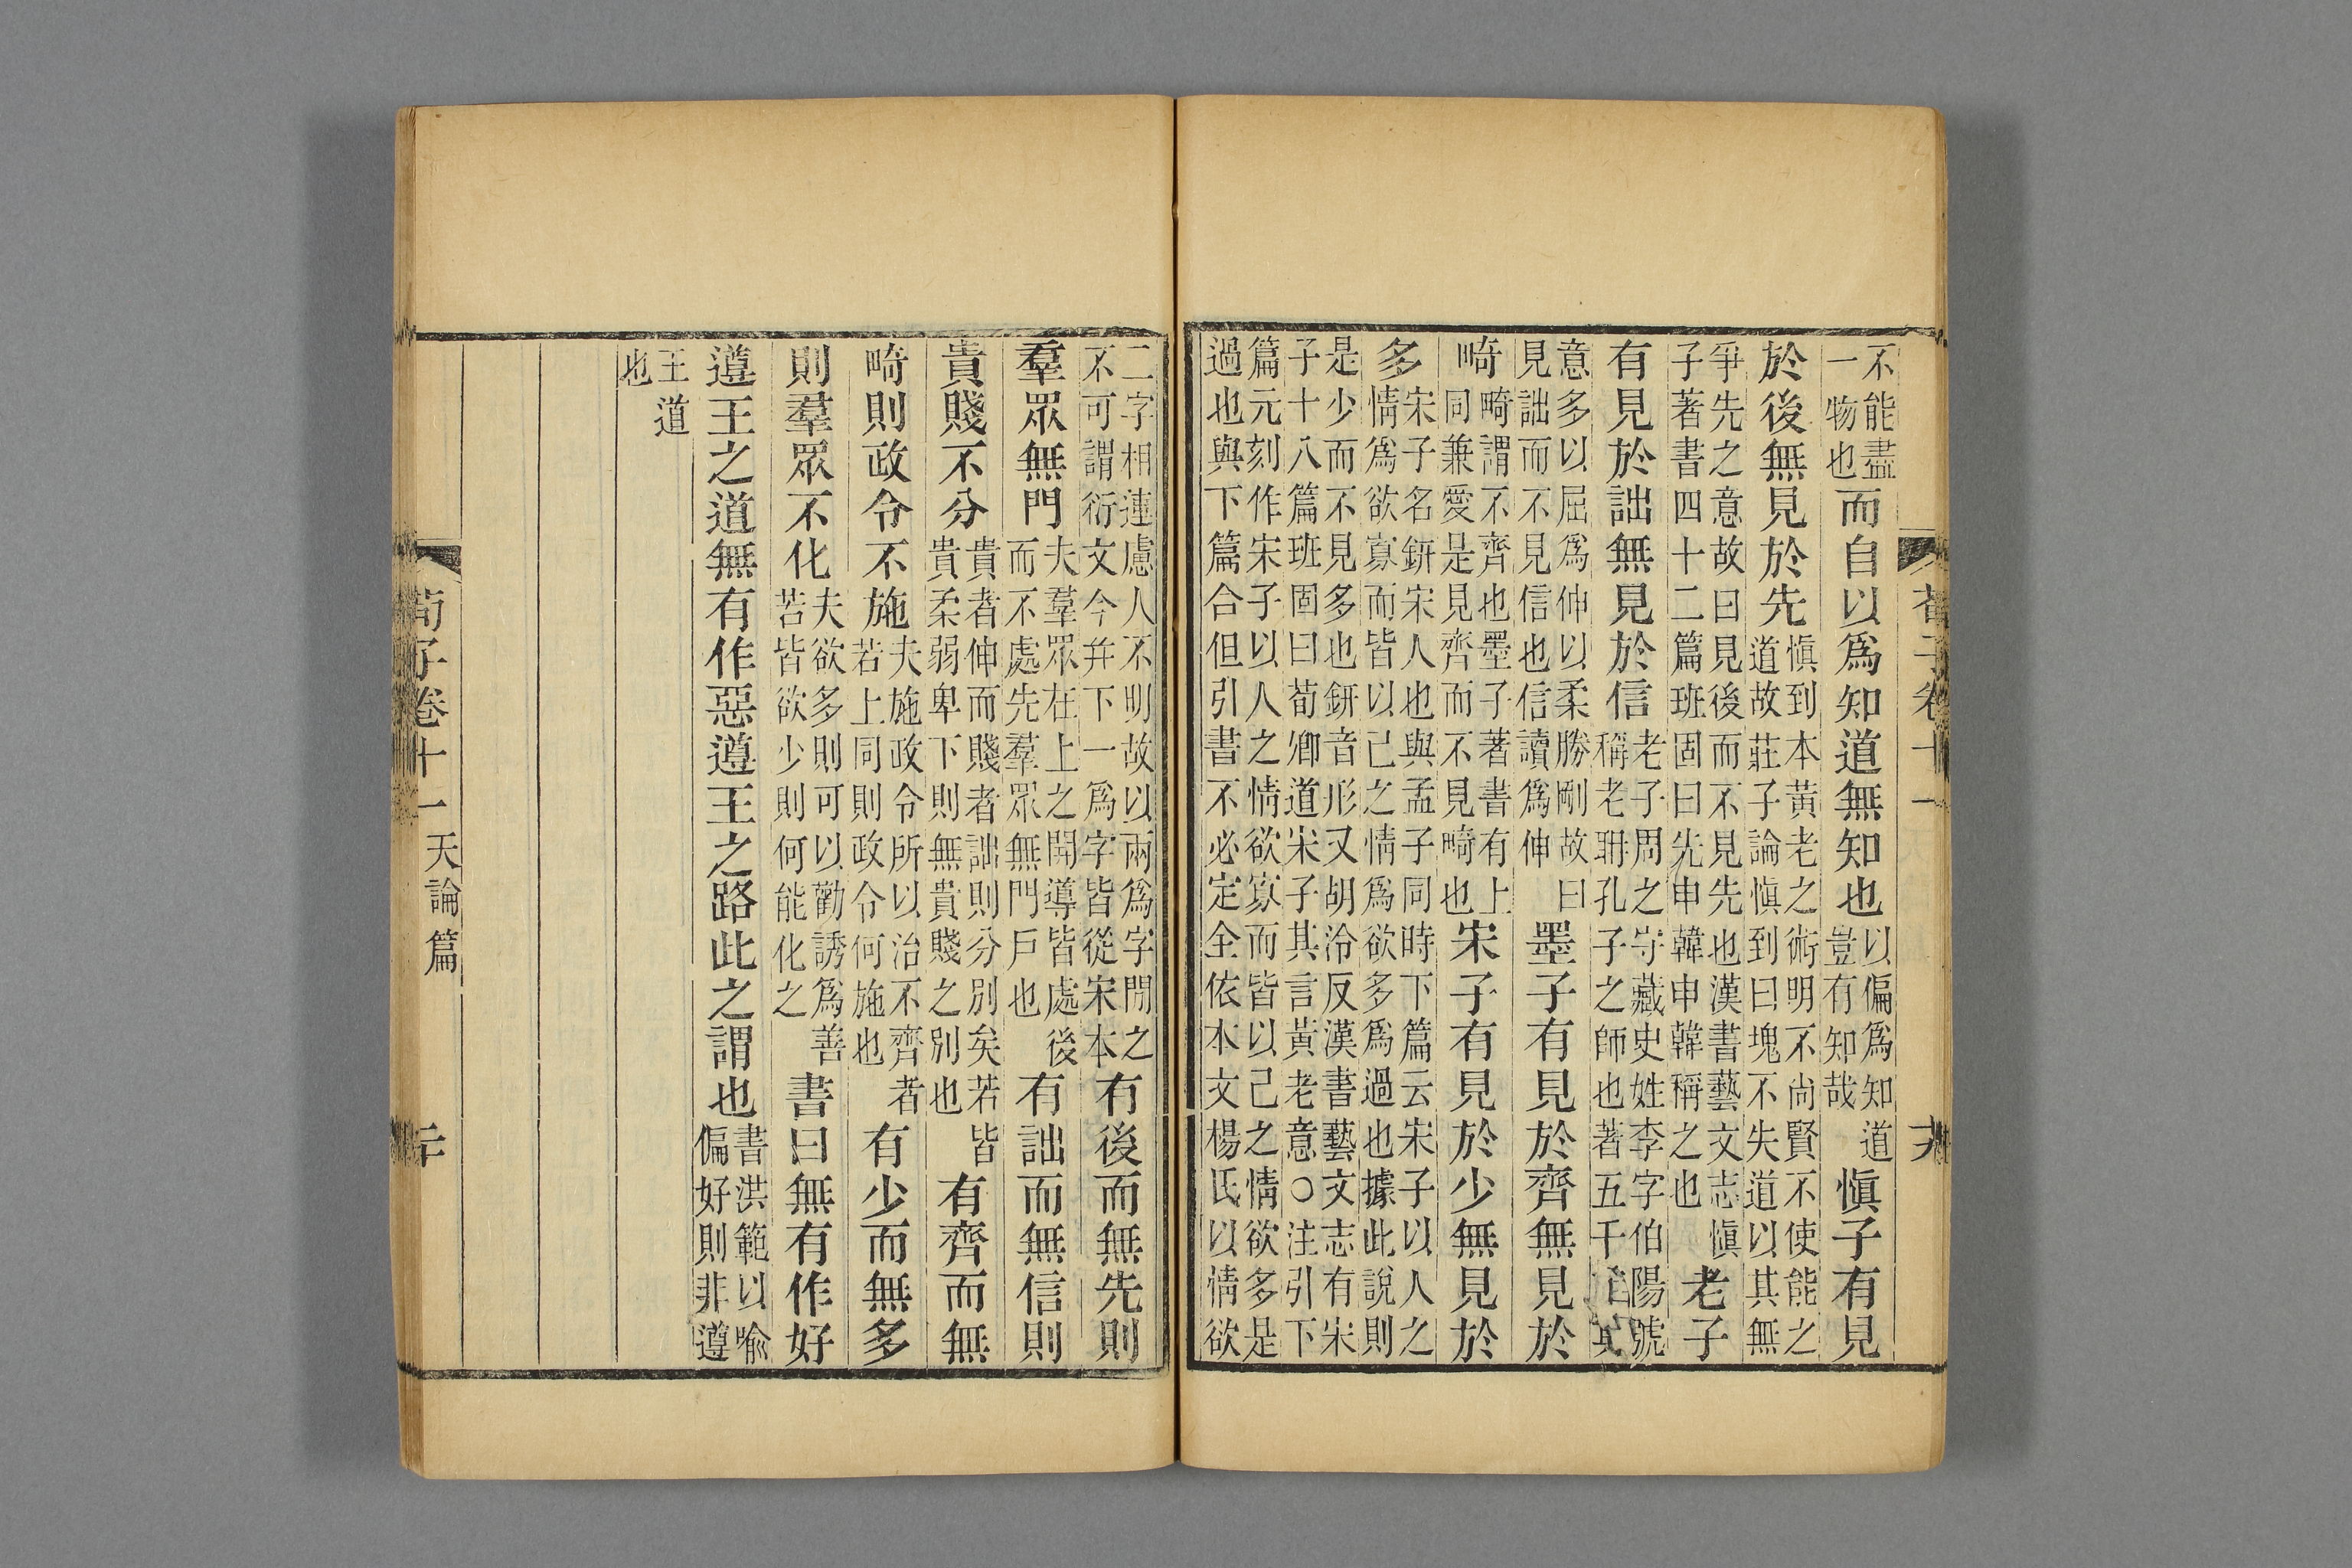 不能盡一物也而自以爲知道無知也以偏爲知道豈有知哉愼子有見
於後無見於先愼到本黃老之術明不尚賢不使能之道故莊子論愼到曰塊不失道以其無
爭先之意故曰見後而不見先也漢書藝文志愼子著書四十二篇班固曰先申韓申韓稱之也老子
有見於詘無見於信老子周之守藏史姓李字伯陽號稱老聃孔子之師也著五千其
意多以屈爲伸以柔勝剛故曰見詘而不見信也信讀爲伸墨子有見於齊無見於
畸畸謂不齊也墨子著書有上同兼愛是見齊而不見畸也宋子有見於少無見於
多宋子名鈃宋人也與孟子同時下篇云宋子以人之情爲欲寡而皆以己之情爲欲多爲過也據此說則
是少而不見多也鈃音形又胡泠反漢書藝文志有宋子十八篇班固曰荀卿道宋子其言黃老意○注引下
篇元刻作宋子以人之情欲寡而皆以己之情欲多是過也與下篇合但引書不必定全依本文楊氏以情欲
二字相連慮人不明故以兩爲字閒之不可謂衍文今幷下一爲字皆從宋本有後而無先則
羣眾無門夫羣眾在上之開導皆處後而不處先羣眾無門戶也有詘而無信則
貴賤不分貴者伸而賤者詘則分別矣若皆貴柔弱卑下則無貴賤之別也有齊而無
畸則政令不施夫施政令所以治不齊者若上同則政令何施也有少而無多
則羣眾不化夫欲多則可以勸誘爲善若皆欲少則何能化之書曰無有作好
遵王之道無有作惡遵王之路此之謂也書洪範以喻偏好則非遵
王道也
荀子卷十一 天論篇